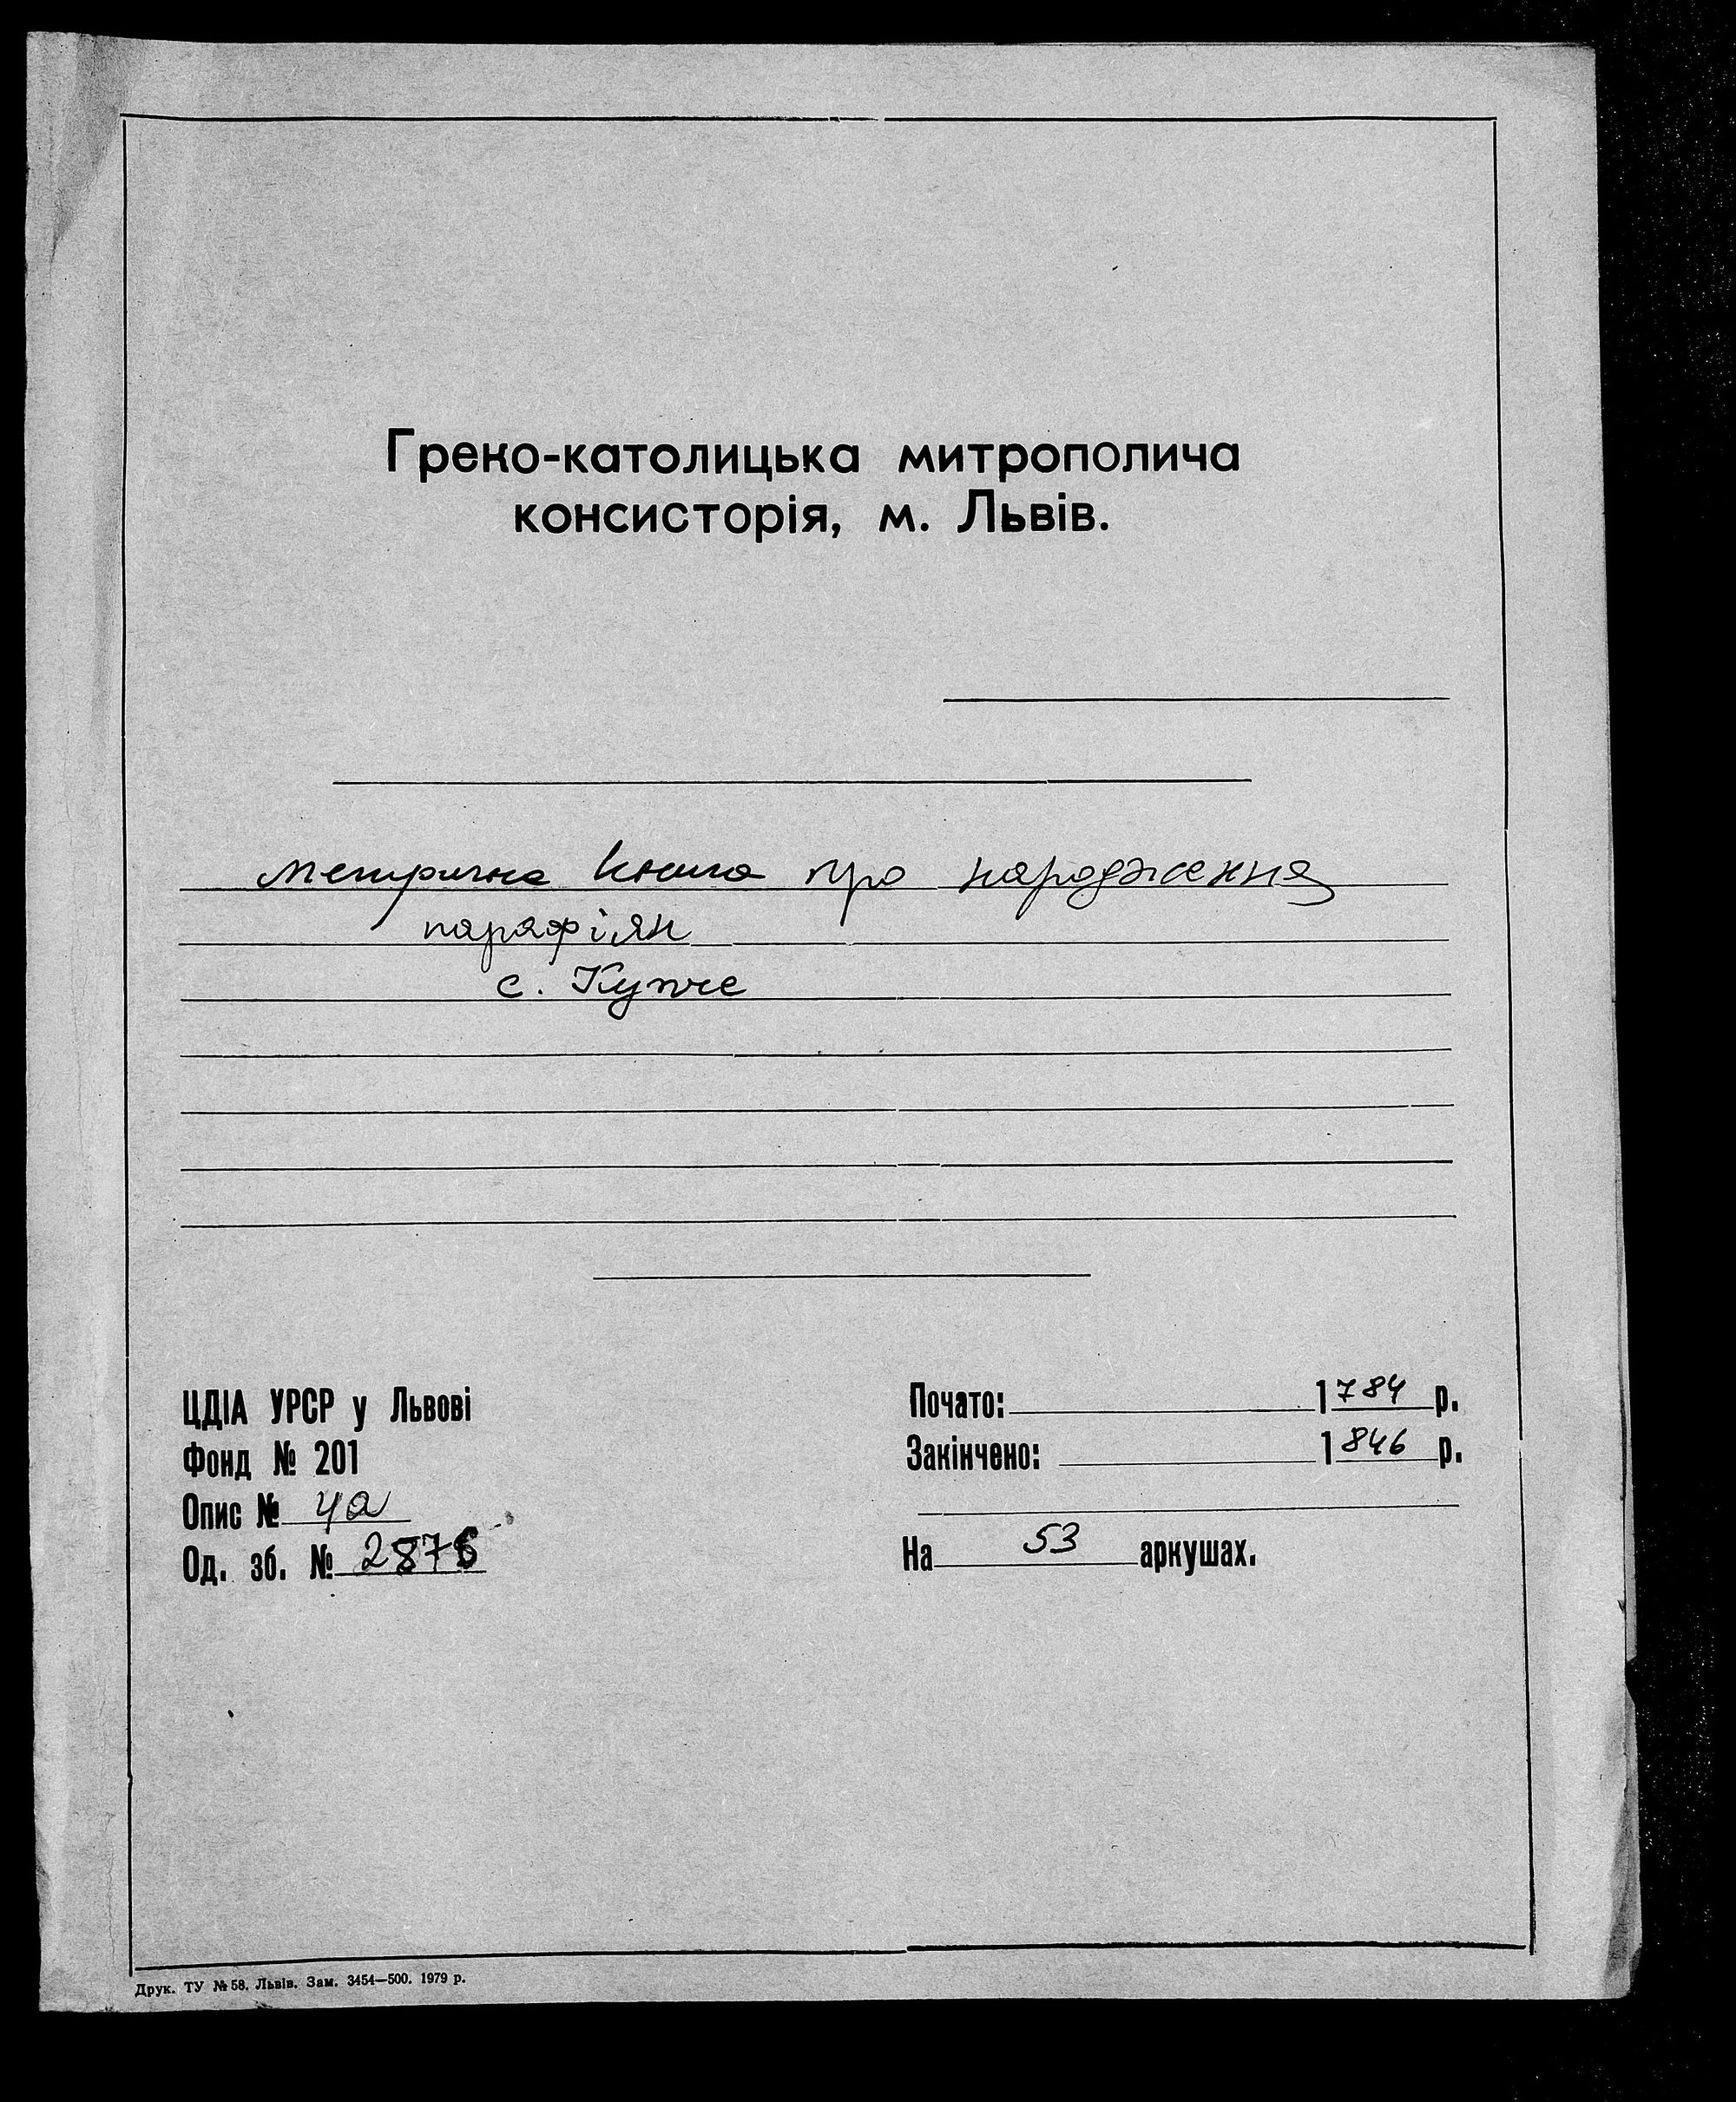 Греко-католицька митрополича
консисторія, м. Львів.
метрична книга про народження
парафіян
с. Купче
ЦДІА УРСР у Львові
Фонд № 201
Опис № 4а
Од. зб. № 2876
Почато: 1784 р.
Закінчено: 1846 р.
На 53 аркушах.
Друк. ТУ № 58. Львів. Зам. 3454—500. 1979 р.